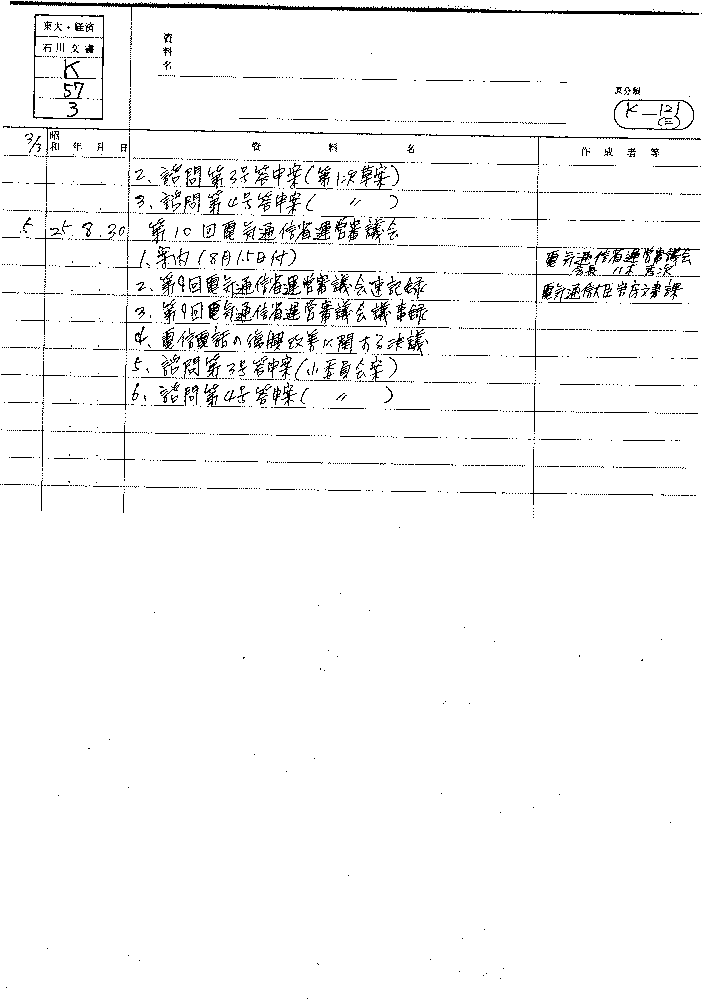 東大・経済
石川文書
K
57
3
資料名
原分類
K—121
(二)
3/3
昭和 年 月 日
資 料 名
作 成 者 等
2、諮問第3号答申案(第1次草案)
3、諮問第4号答申案( 〃 )
5 25 8 30 第10回電気通信省運営審議会
1、案内(8月15日付) 電気通信省運営審議会
会長 八木 秀次
2、第9回電気通信省運営審議会速記録 電気通信大臣官房文書課
3、第9回電気通信省運営審議会議事録
4、電信電話の復興改善に関する決議
5、諮問第3号答申案(小委員会案)
6、諮問第4号答申案( 〃 )